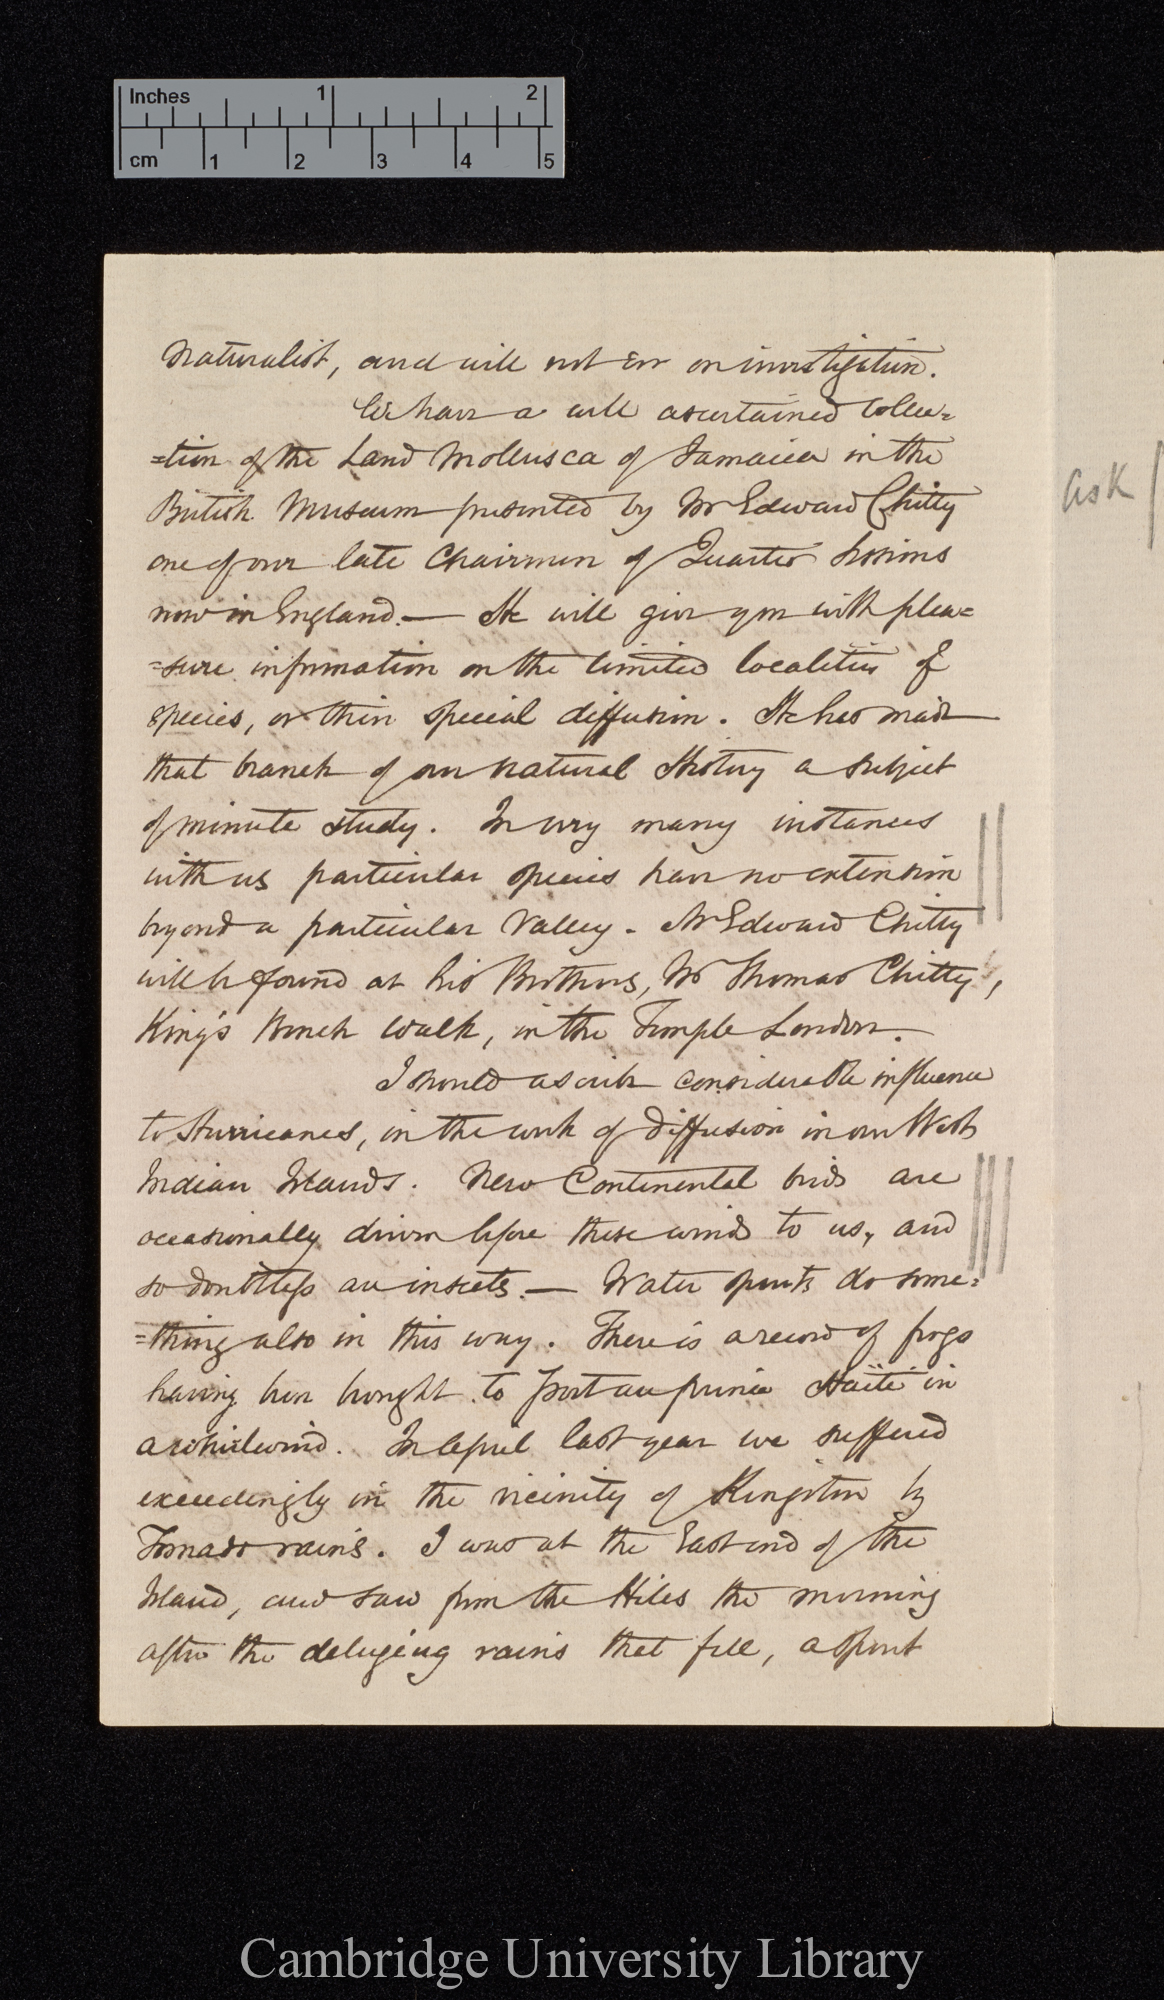 Inches 1 2
cm 1 2 3 4 5
Naturalist, and will not err on investigation.
We have a well ascertained Collec=
=tion of the Land Mollusca of Jamaica in the
British Museum presented by Mr Edward Chitty
one of our late Chairmen of Quarter Sessions
now in England.— He will give you with plea=
=sure information on the limited localities of
species, or their special diffusion. He has made
that branch of our Natural History a subject
of minute study. In very many instances
with us particular species have no extension
beyond a particular Valley. Mr Edward Chitty
will be found at his Brothers, Mr Thomas Chitty,
King's Bench Walk, in the Temple London.
I should ascribe considerable influence
to Hurricanes, in the work of diffusion in our West
Indian Islands. New Continental birds are
occasionally driven before these winds to us, and
so doubtless are insects.— Water spouts do some=
=thing also in this way. There is a record of frogs
having been brought to Port au prince Haïti in
a whirlwind. In April last year we suffered
exceedingly in the vicinity of Kingston by
Tornado rains. I was at the East end of the
Island, and saw from the Hills the morning
after the deluging rains that fell, a spout
ask
Cambridge University Library